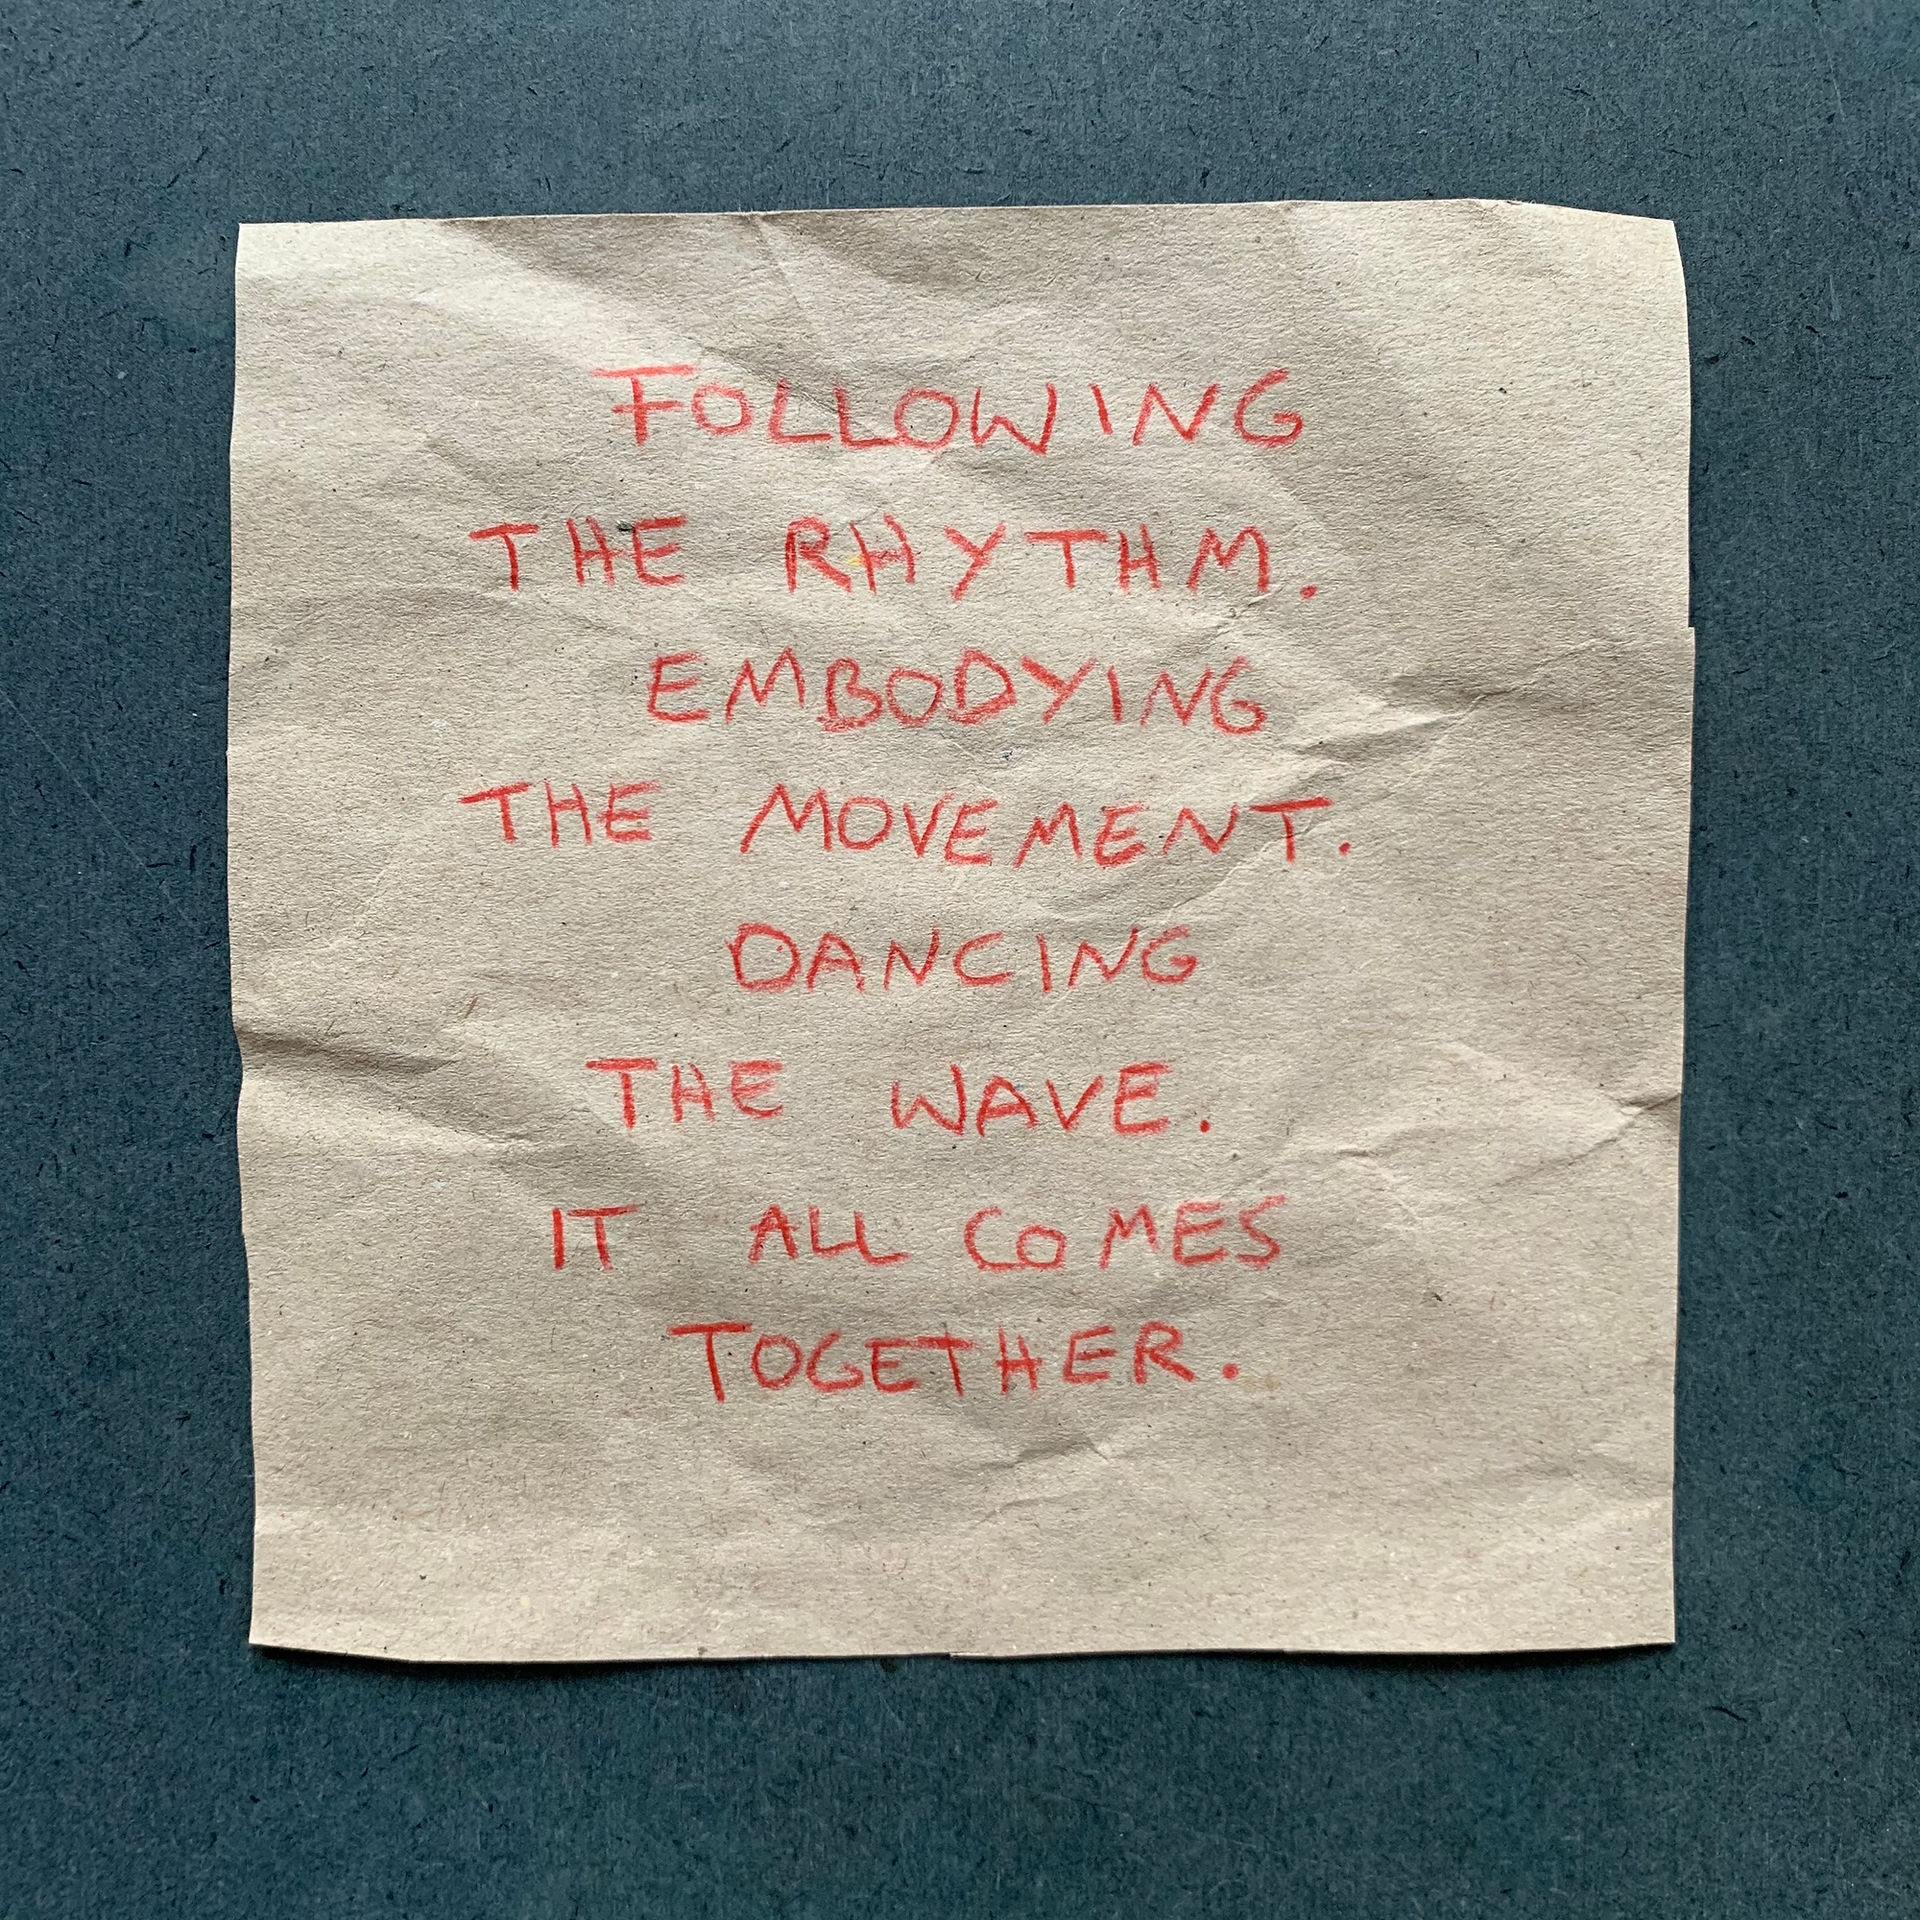 FOLLOWING
THE RHYTHM.
EMBODYING
THE MOVEMENT.
DANCING
THE WAVE.
IT ALL COMES
TOGETHER.